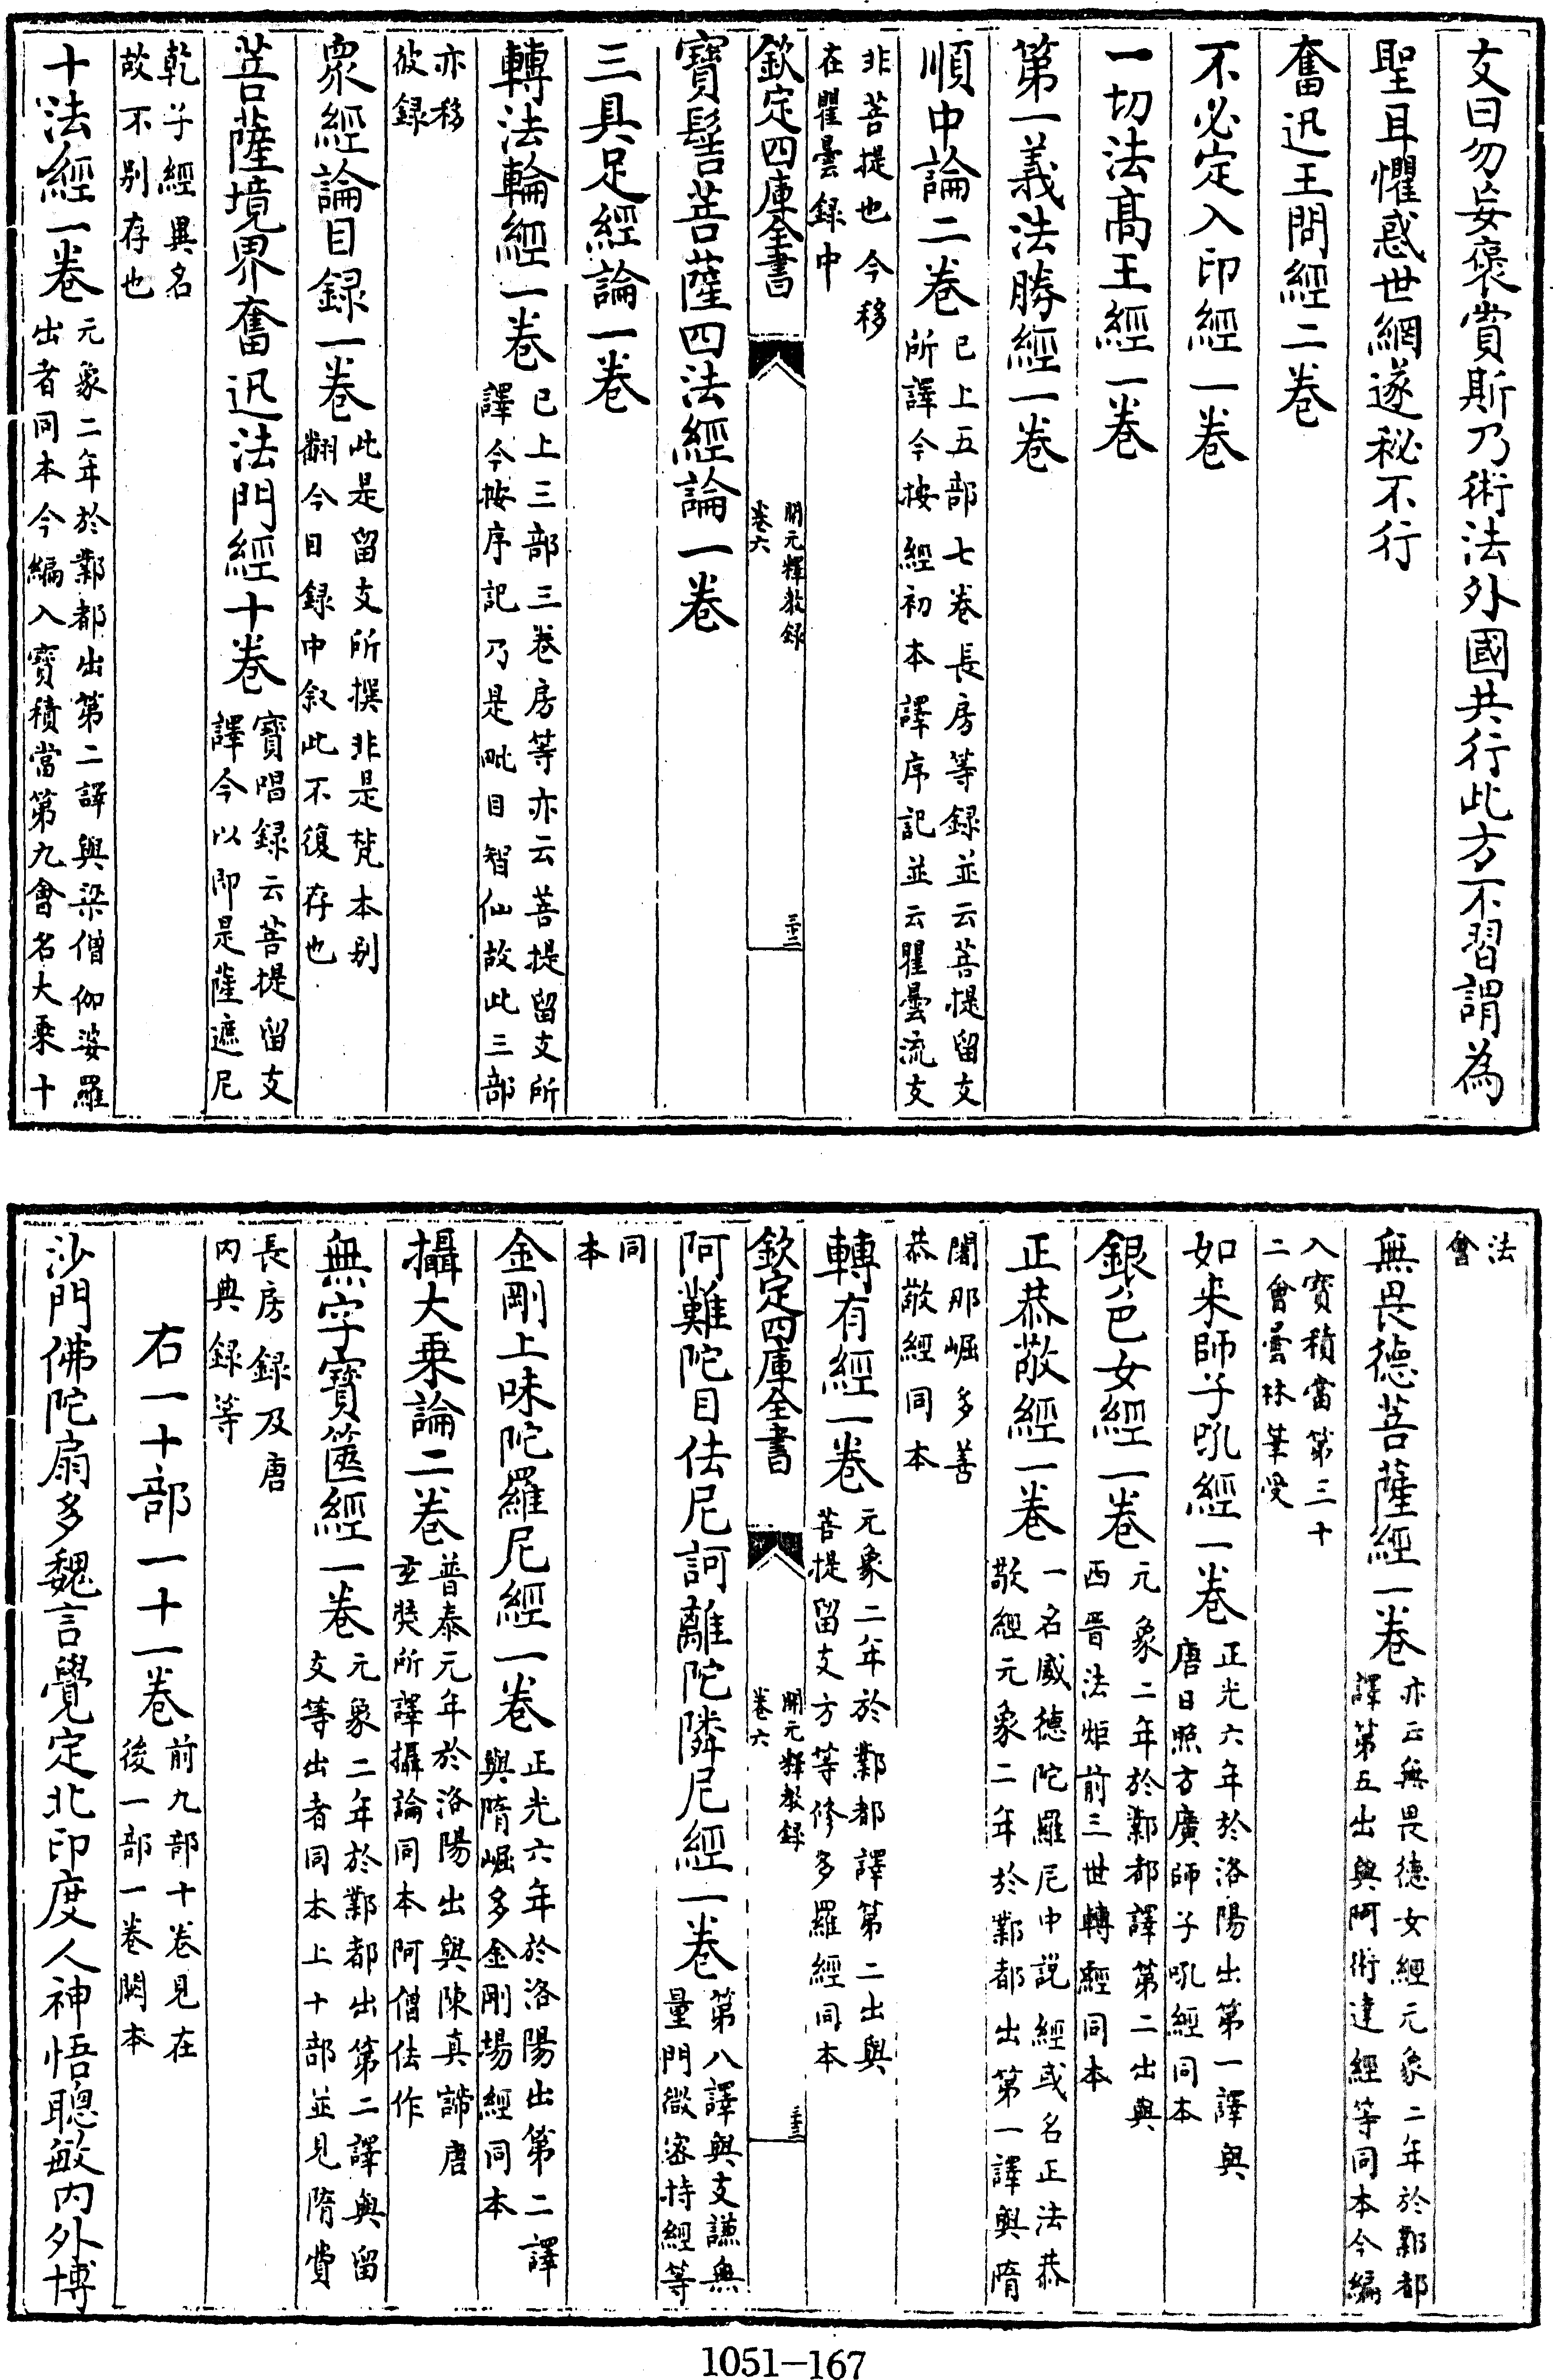 支曰勿妄褒賞斯乃術法外國共行此方不習謂為
聖耳懼惑世網遂秘不行
奮迅王問經二卷
不必定入印經一卷
一切法髙王經一卷
第一義法勝經一卷
順中論二卷已上五部七卷長房等録並云菩提留支
所譯今按經初本譯序記並云瞿曇流支
非菩提也今移
在瞿曇録中
欽定四庫全書
開元釋教録
卷六
三十二
寶髻菩薩四法經論一卷
三具足經論一卷
轉法輪經一卷已上三部三卷房等亦云菩提留支所
譯今按序記乃是毗目智仙故此三部
亦移
彼録
衆經論目録一卷此是留支所撰非是梵本别
翻今目録中叙此不復存也
菩薩境界奮迅法門經十卷寶唱録云菩提留支
譯今以即是薩遮尼
乾子經異名
故不别存也
十法經一卷元象二年於鄴都出第二譯與梁僧伽婆羅
出者同本今編入寶積當第九會名大乘十
法
會
無畏德菩薩經一卷亦云無畏德女經元象二年於鄴都
譯第五出與阿術達經等同本今編
入寶積當第三十
二會曇林筆受
如来師子吼經一卷正光六年於洛陽出第一譯與
唐日照方廣師子吼經同本
銀色女經一卷元象二年於鄴都譯第二出與
西晋法炬前三世轉經同本
正恭敬經一卷一名威德陀羅尼中説經或名正法恭
敬經元象二年於鄴都出第一譯與隋
闍那崛多善
恭敬經同本
轉有經一卷元象二年於鄴都譯第二出與
菩提留支方等修多羅經同本
欽定四庫全書
開元釋教録
卷六
三十三
阿難陀目佉尼訶離陀隣尼經一卷第八譯與支謙無
量門微宻持經等
同
本
金剛上味陀羅尼經一卷正光六年於洛陽出第二譯
與隋崛多金剛場經同本
攝大乘論二卷普泰元年於洛陽出與陳真諦唐
玄奘所譯攝論同本阿僧佉作
無字寶篋經一卷元象二年於鄴都出第二譯與留
支等出者同本上十部並見隋費
長房録及唐
内典録等
右一十部一十一卷前九部十卷見在
後一部一卷闕本
沙門佛陀扇多魏言覺定北印度人神悟聰敏内外博
1051-167